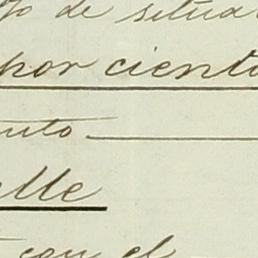 de situa
por ciento
uto
lle
con el